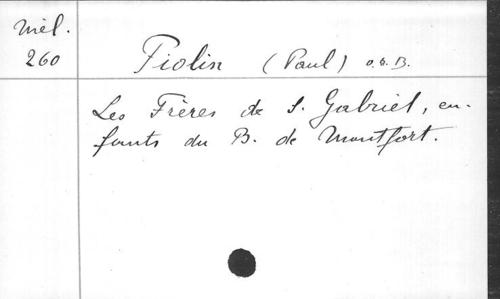 Mél.
260
Piolin (Paul) o.s.B.
Les Frères de S. Gabriel, en-
fants du B. de Montfort.